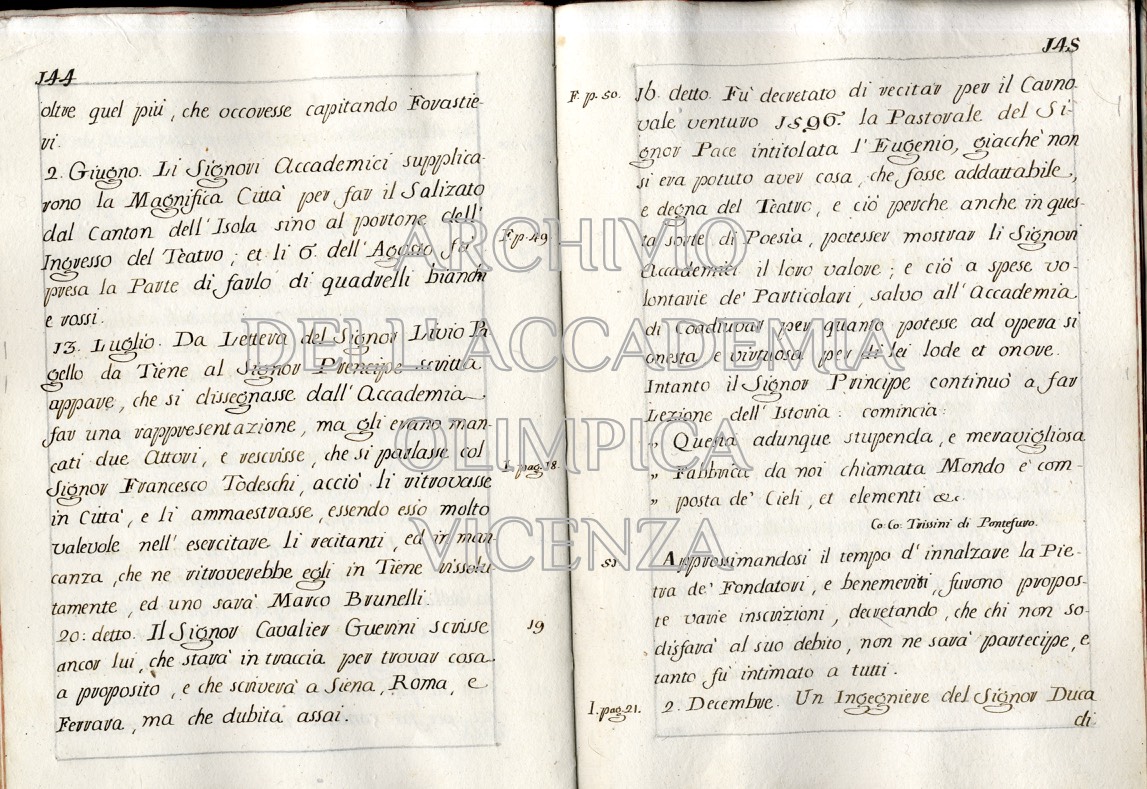 144
oltre quel più, che occoresse capitando Forastie-
ri.
2. Giugno. Li Signori Accademici supplica-
rono la Magnifica Città per far il Salizato
dal Canton dell'Isola sino al portone dell'
Ingresso del Teatro; et li 6. dell'Agosto fù
F. p. 49.
presa la Parte di farlo di quadrelli bianchi
e rossi.
13. Luglio. Da Lettera del Signor Livio Pa
gello da Tiene al Signor Prencipe scritta
appare, che si dissegnasse dall'Accademia
far una rappresentazione, ma gli erano man-
cati due Attori, e rescrisse, che si parlasse col
I. pag. 18.
Signor Francesco Tòdeschi, acciò li ritrovasse
in Città, e li ammaestrasse, essendo esso molto
valevole nell'esercitare li recitanti, ed in man-
canza, che ne ritroverebbe egli in Tiene rissolu
tamente, ed uno sarà Marco Brunelli.
20: detto. Il Signor Cavalier Guerini scrisse
19
ancor lui, che starà in traccia per trovar cosa
a proposito, e che scriverà a Siena, Roma, e
Ferrara, ma che dubita assai.
145
F. p. 50.
16. detto. Fù decretato di recitar per il Carno
vale venturo 1596. la Pastorale del Si-
gnor Pace intitolata l'Eugenio, giacchè non
si era potuto aver cosa, che fosse addattabile,
e degna del Teatro, e ciò perche anche in ques-
ta sorte di Poesia, potesser mostrar li Signori
Accademici il loro valore; e ciò a spese vo-
lontarie de' Particolari, salvo all'Accademia
di Coadiuvar per quanto potesse ad opera si
onesta e virtuosa per di lei lode et onore.
Intanto il Signor Principe continuò a far
Lezione dell'Istoria: comincia:
„ Questa adunque stupenda, e meravigliosa
„ Fabbrica da noi chiamata Mondo è com-
„ posta de' Cieli, et elementi &c.
Co: Co: Trissini di Pontefuro.
51
Approssimandosi il tempo d'innalzare la Pie-
tra de' Fondatori, e benemeriti, furono propos-
te varie inscrizioni, decretando, che chi non so-
disfarà al suo debito, non ne sarà partecipe, e
tanto fù intimato a tutti.
I. pag. 21.
2. Decembre. Un Ingegniere del Signor Duca
di
ARCHIVIO
DELL'ACCADEMIA
OLIMPICA
VICENZA